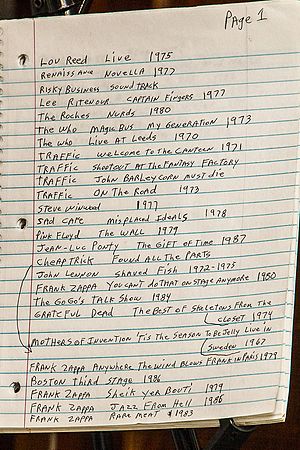 Page 1
Lou Reed Live 1975
Renaissance Novella 1977
Risky Business Soundtrack
Lee Ritenour Captain Fingers 1977
The Roches Nurds 1980
The Who Magic Bus My Generation 1973
The Who Live At Leeds 1970
Traffic Welcome to the Canteen 1971
Traffic Shootout at the Fantasy Factory
Traffic John Barleycorn Must Die
Traffic On The Road 1973
Steve Winwood 1977
Sad Cafe Misplaced Ideals 1978
Pink Floyd The Wall 1979
Jean-Luc Ponty The Gift of Time 1987
Cheap Trick Found All The Parts
John Lennon Shaved Fish 1972-1975
Frank Zappa You Cant do That on Stage Anymore 1980
The GoGo's Talk Show 1984
Grateful Dead The Best of Skeletons From the
Closet 1974
Mothers of Invention Tis The Season To Be Jelly Live in
Sweden 1967
Frank Zappa Anywhere The Wind Blows Frank in Paris 1979
Boston Third Stage 1986
Frank Zappa Sheik Yer Bouti 1979
Frank Zappa Jazz From Hell 1986
Frank Zappa Rare Meat 1983